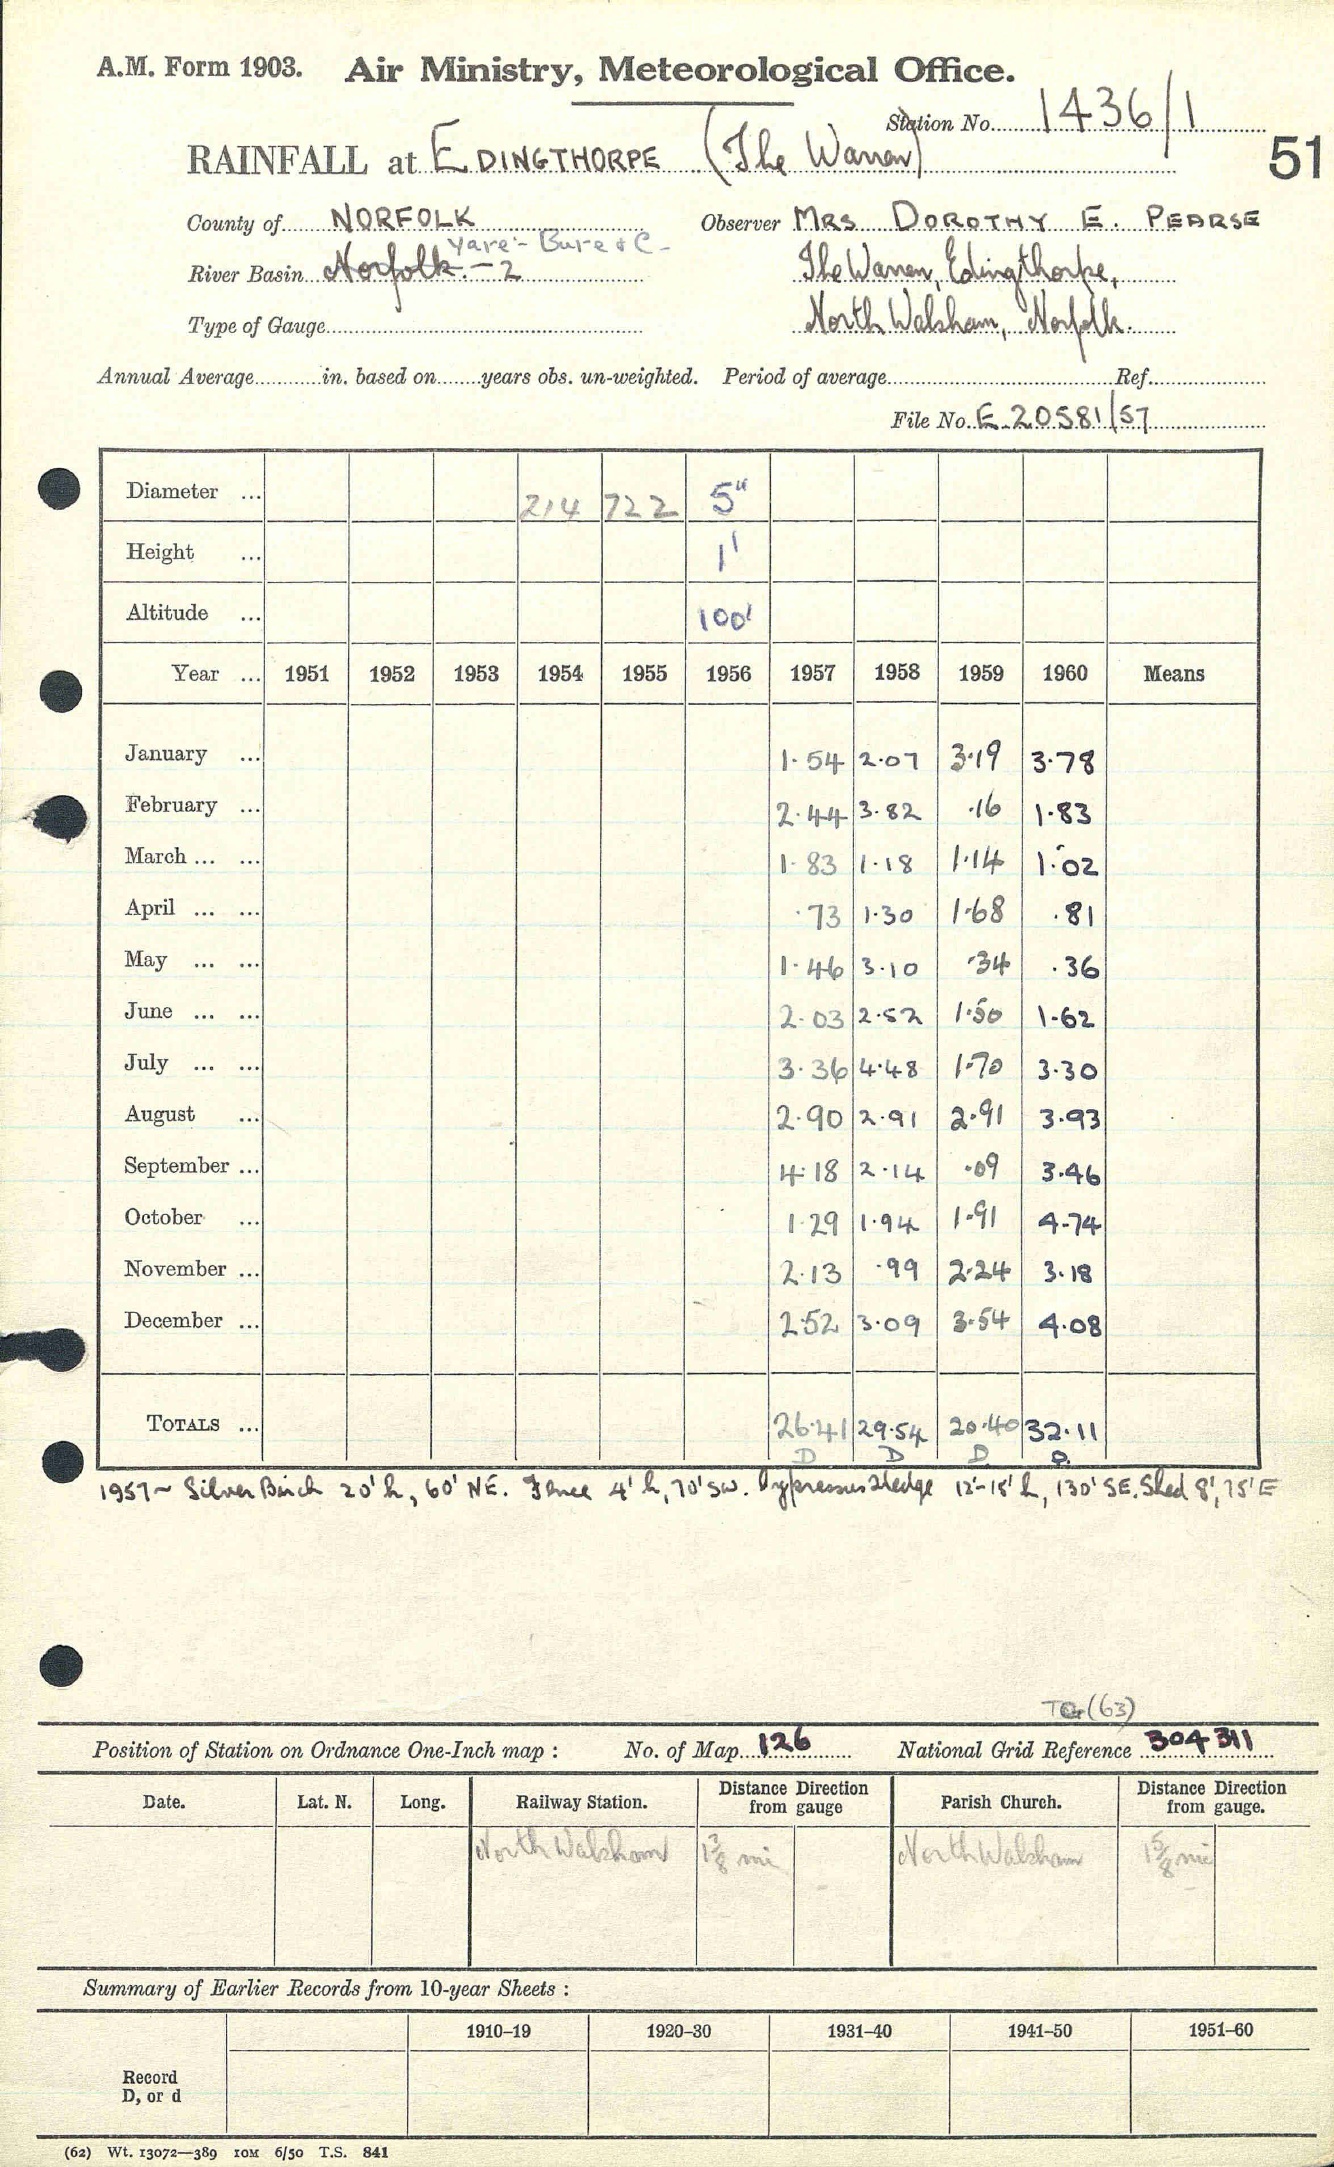 A.M. Form 1903. Air Ministry, Meteorological Office.
Station No. 1436/1
RAINFALL at EDINGTHORPE (The Warren)
51
County of NORFOLK Observer MRS DOROTHY E. PEARSE
Yare - Bure & C -
River Basin Norfolk. - 2 The Warren, Edingthorpe,
Type of Gauge North Walsham, Norfolk.
Annual Average in. based on years obs. un-weighted. Period of average Ref.
File No. E.20581/57
Diameter ... 214 722 5"
Height ... 1'
Altitude ... 100'
Year ... 1951 1952 1953 1954 1955 1956 1957 1958 1959 1960 Means
January ... 1.54 2.07 3.19 3.78
February ... 2.44 3.82 .16 1.83
March ... ... 1.83 1.18 1.14 1.02
April ... ... .73 1.30 1.68 .81
May ... ... 1.46 3.10 .34 .36
June ... ... 2.03 2.52 1.50 1.62
July ... ... 3.36 4.48 1.70 3.30
August ... 2.90 2.91 2.91 3.93
September ... 4.18 2.14 .09 3.46
October ... 1.29 1.94 1.91 4.74
November ... 2.13 .99 2.24 3.18
December ... 2.52 3.09 3.54 4.08
TOTALS ... 26.41 29.54 20.40 32.11
D D D D
1957~ Silver Birch 20' h, 60' NE. Fence 4' h, 70' SW. Cypressus Hedge 12'-15' h, 130' SE. Shed 8', 75' E
TG (63)
Position of Station on Ordnance One-Inch map : No. of Map 126 National Grid Reference 304 311
Date. Lat. N. Long. Railway Station. Distance Direction from gauge Parish Church. Distance Direction from gauge.
North Walsham 1 3/8 mi North Walsham 1 5/8 mi
Summary of Earlier Records from 10-year Sheets :
1910–19 1920–30 1931–40 1941–50 1951–60
Record
D, or d
(62) Wt. 13072—389 10M 6/50 T.S. 841